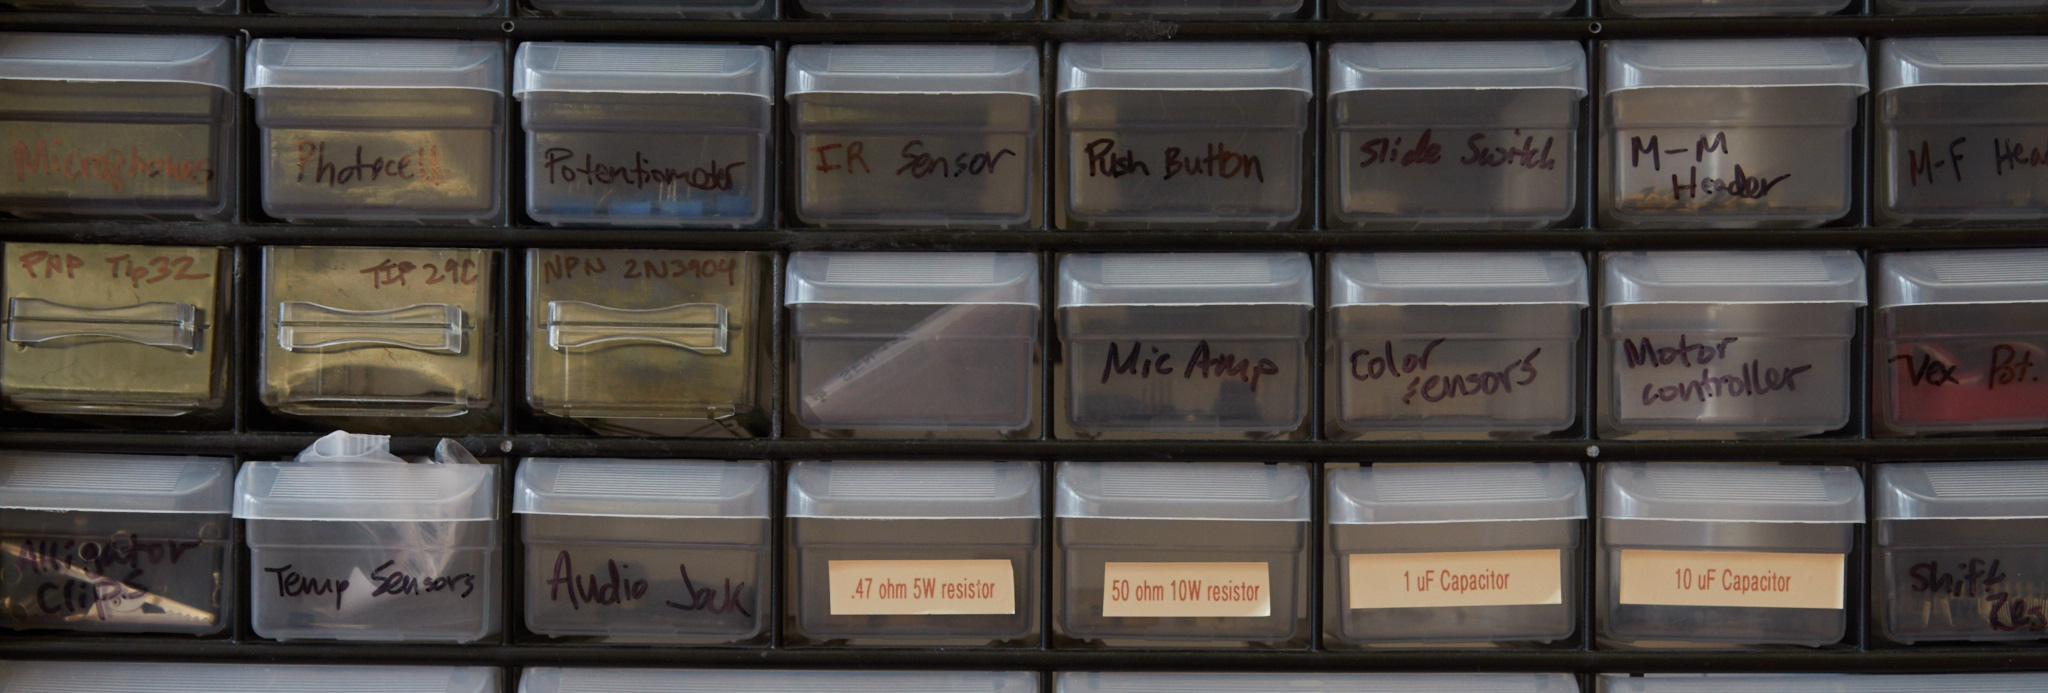 Microphones
Photocell
Potentiometer
IR Sensor
Push Button
Slide Switch
M-M
Header
M-F Hea
PNP Tip32
TIP 29C
NPN 2N3904
Mic Amp
Color
sensors
Motor
controller
Vex Pot.
Alligator
Clips
Temp Sensors
Audio Jack
.47 ohm 5W resistor
50 ohm 10W resistor
1 uF Capacitor
10 uF Capacitor
Shift
Res